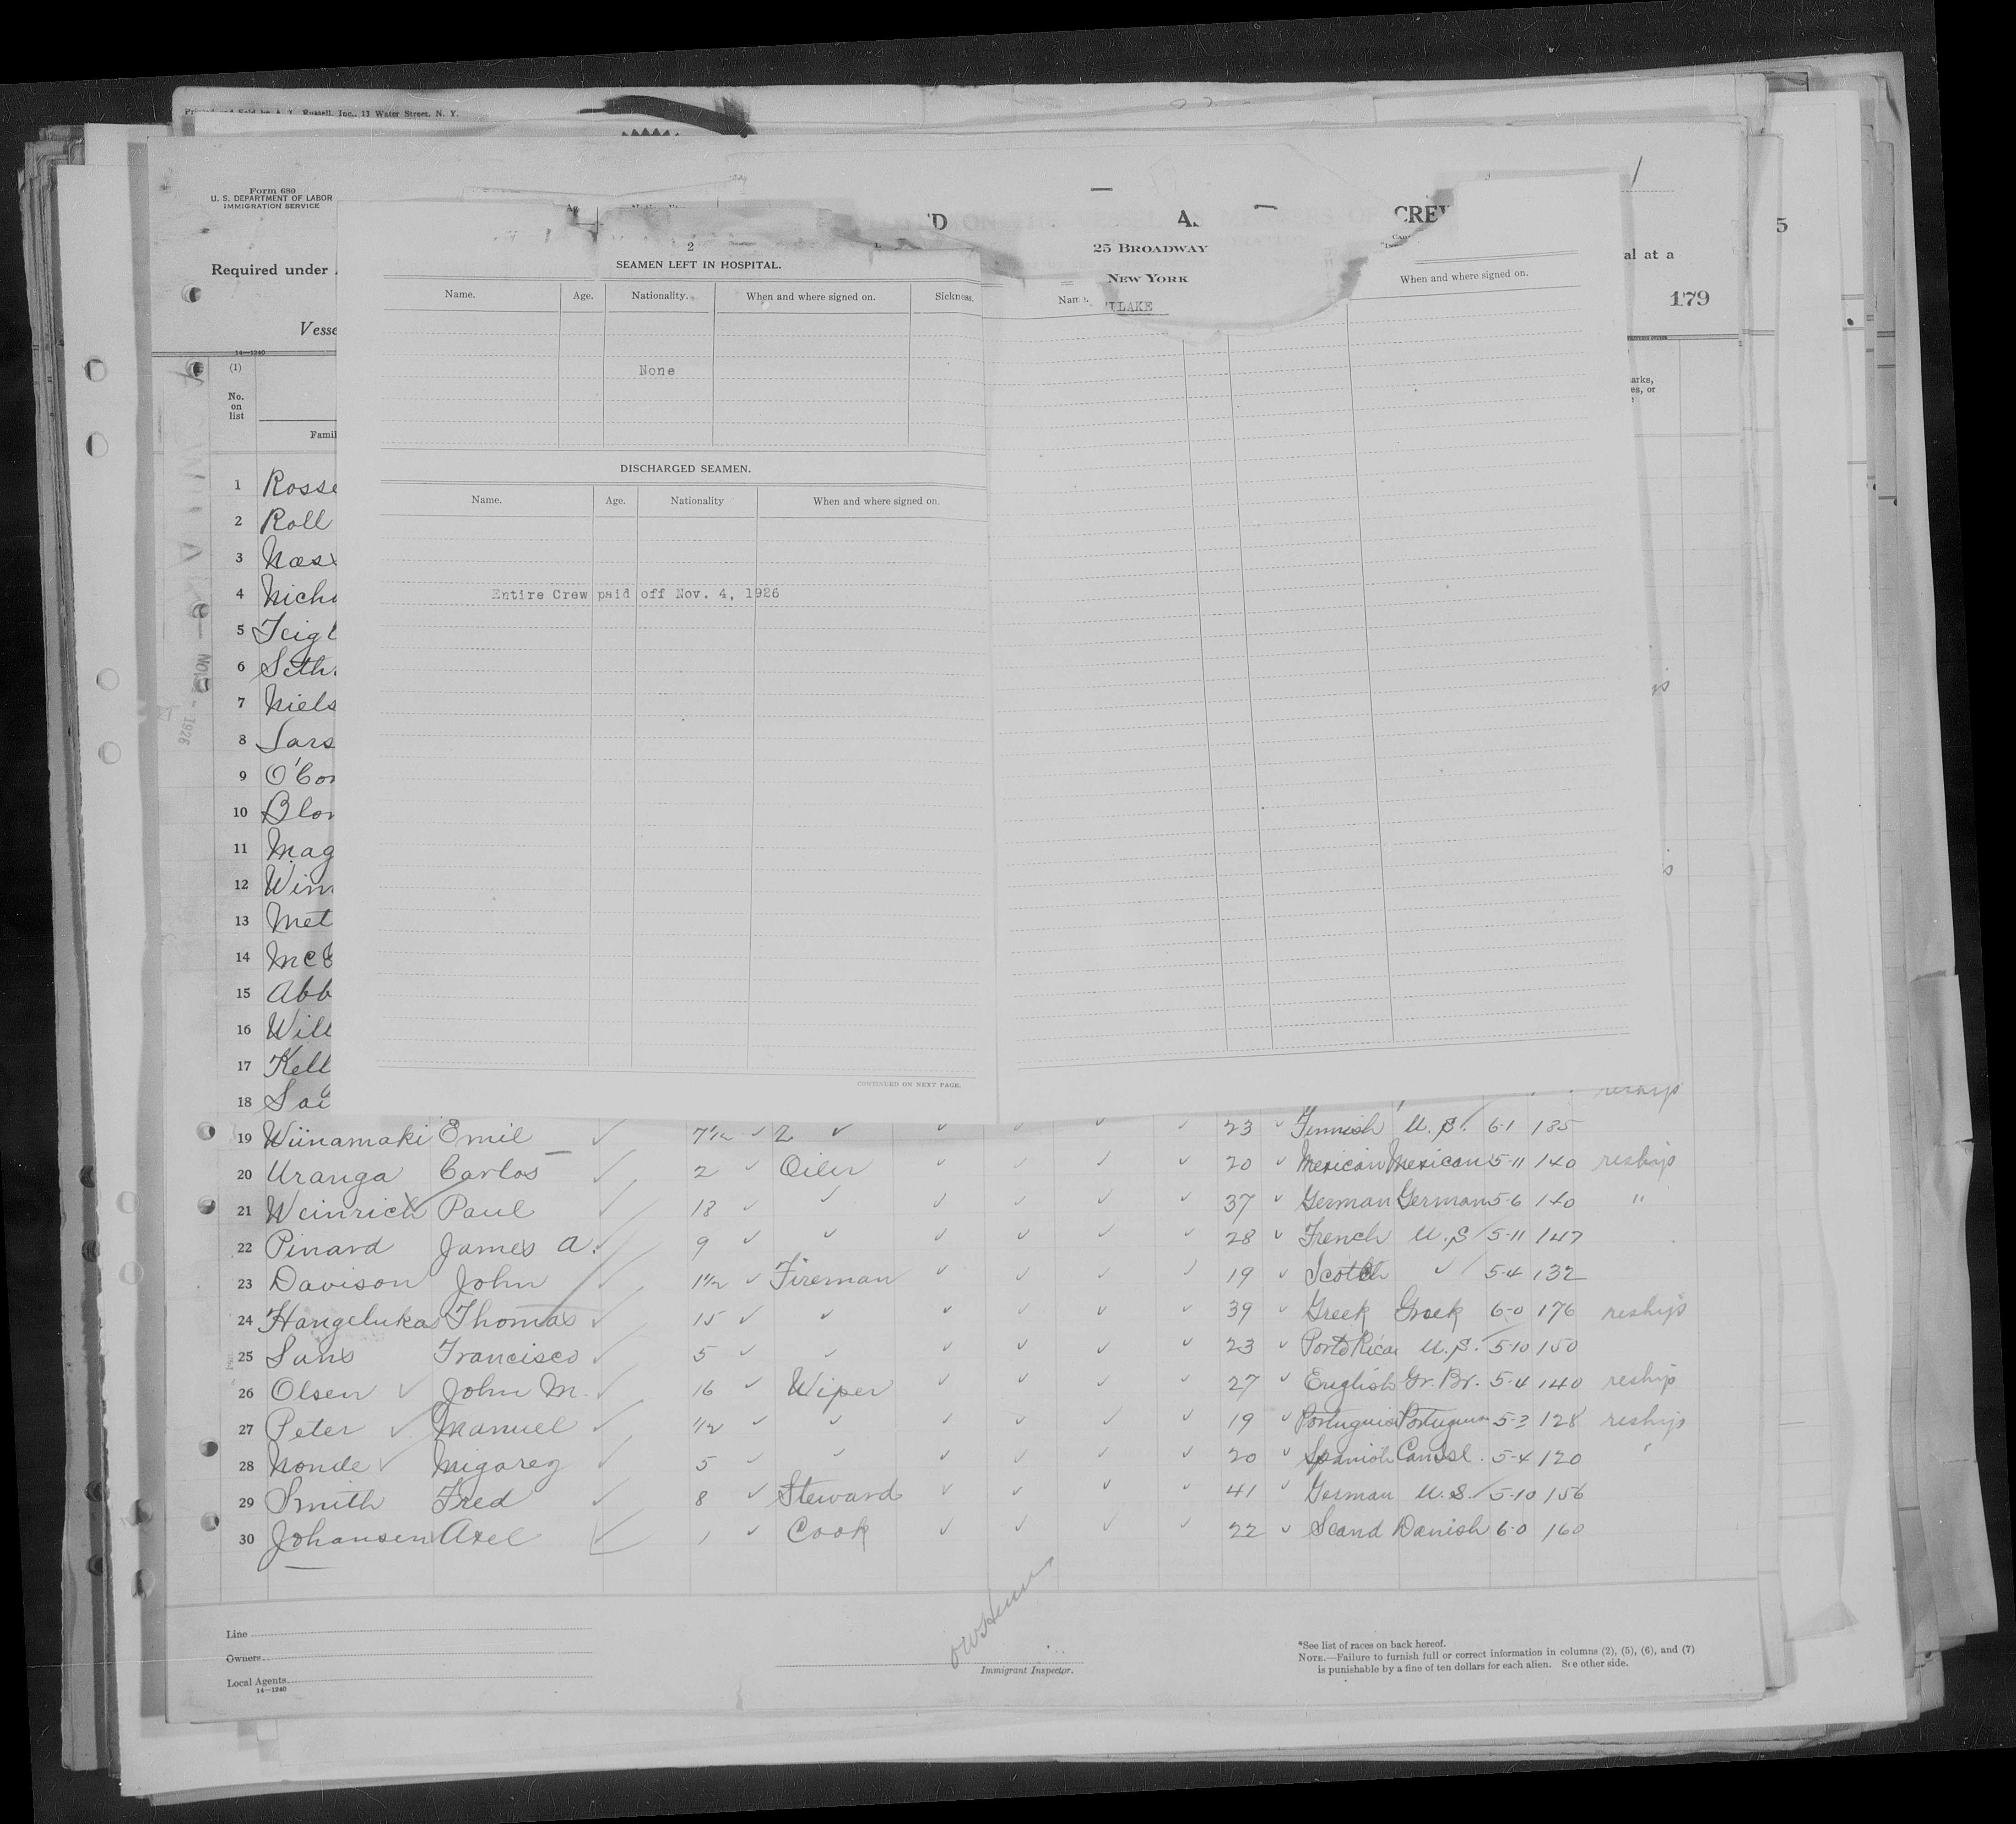 Russell, Inc., 13 Water Street, N. Y.
Form 680
U. S. DEPARTMENT OF LABOR
IMMIGRATION SERVICE
Required under
al at a
179
5
Vesse
14—1240
25 BROADWAY
NEW YORK
TLAKE
CREW
2
SEAMEN LEFT IN HOSPITAL.
Name. Age. Nationality. When and where signed on. Sickness.
Name. When and where signed on.
None
DISCHARGED SEAMEN.
Name. Age. Nationality When and where signed on.
Entire Crew paid off Nov. 4, 1926
CONTINUED ON NEXT PAGE.
(1)
No. on list
Famil
arks,
es, or
1 Rosse
2 Roll
3 Næs
4 Nich
5 Teigl
6 Seth
7 Niels
8 Lars
9 O'Con
10 Blon
11 Mag
12 Winn
13 Met
14 Mc
15 Abb
16 Will
17 Kell
18 Sai reship
19 Wiinamaki Emil 7½ 2 ✓ 23 Finnish U.S. 6-1 185
20 Uranga Carlos 2 Oiler 20 Mexican Mexican 5-11 140 reship
21 Weinrich Paul 18 ✓ 37 German German 5-6 140 "
22 Pinard James A. 9 ✓ 28 French U.S 5-11 147
23 Davison John 1½ Fireman 19 Scotch ✓ 5-4 132
24 Hangelukas Thomas 15 ✓ 39 Greek Greek 6-0 176 reship
25 Sans Francisco 5 ✓ 23 Porto Rican U.S. 5-10 150
26 Olsen John M. 16 Wiper 27 English Gr. Br. 5-4 140 reship
27 Peter Manuel ½ ✓ 19 Portuguese Portuguese 5-3 128 reship
28 Nonde Migarez 5 ✓ 20 Spanish Can Isl. 5-4 120 "
29 Smith Fred 8 Steward 41 German U.S. 5-10 156
30 Johansen Axel 1 Cook 22 Scand Danish 6-0 160
NOV 5 - 1926
Line
Owners
Local Agents
14—1240
Immigrant Inspector.
*See list of races on back hereof.
NOTE.—Failure to furnish full or correct information in columns (2), (5), (6), and (7)
is punishable by a fine of ten dollars for each alien. See other side.